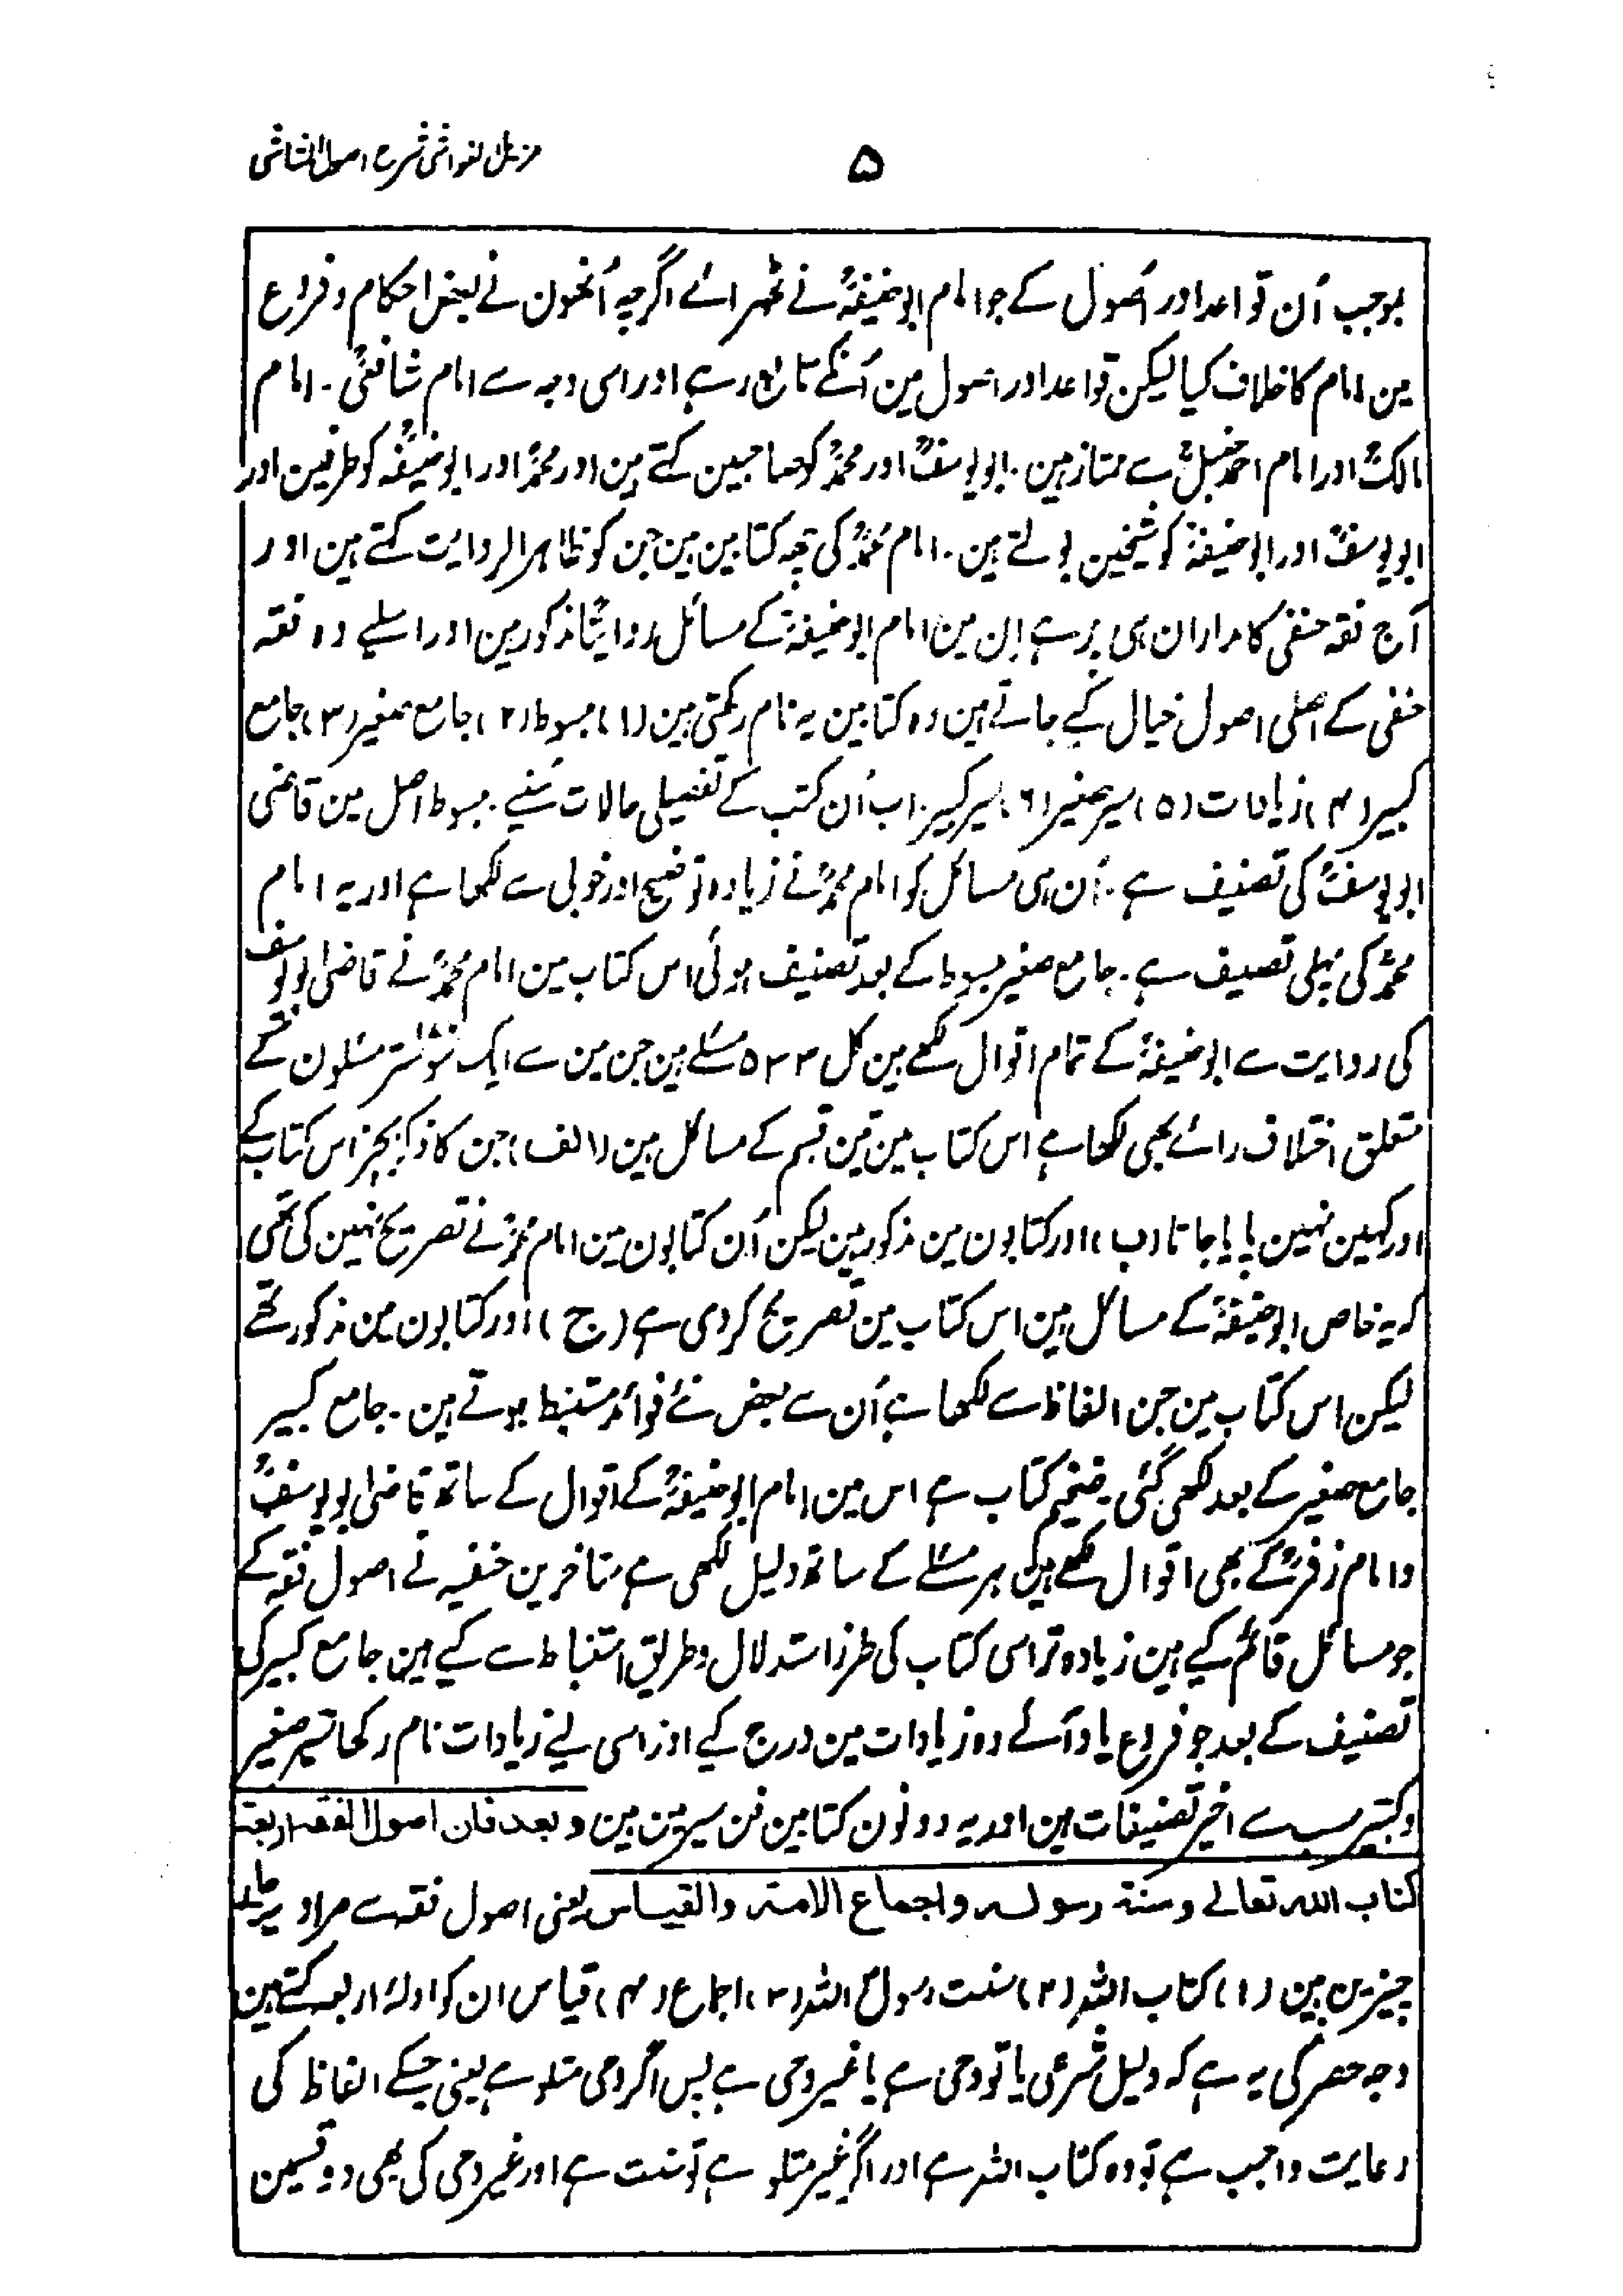 مزیل الغواشی شرح اصول الشاشی
۵
بموجب اُن قواعد اور اُصول کے جو امام ابو حنیفہؒ نے ٹھہرائے اگرچہ اُنھون نے بعض احکام و فروع
مین امام کا خلاف کیا لیکن قواعد اور اصول مین اُنکے تابع رہے اور اسی وجہ سے امام شافعیؒ ۔ امام
مالکؒ اور امام احمد حنبلؒ سے ممتاز ہین ۔ ابو یوسفؒ اور محمدؒ کو صاحبین کہتے ہین اور محمدؒ اور ابو حنیفہؒ کو طرفین اور
ابو یوسفؒ اور ابو حنیفہؒ کو شیخین بولتے ہین ۔ امام محمدؒ کی چھ کتابین ہین جن کو ظاہر الروایت کہتے ہین اور
آج فقہ حنفی کا مدار ان ہی پر ہے اِن مین امام ابو حنیفہؒ کے مسائل روایتًا مذکور ہین اور اسلیے وہ فقہ
حنفی کے اصلی اصول خیال کیے جاتے ہین وہ کتابین یہ نام رکھتی ہین (۱) مبسوط (۲) جامع صغیر (۳) جامع
کبیر (۴) زیادات (۵) سیر صغیر (۶) سیر کبیر ۔ اب اُن کتب کے تفصیلی حالات سُنیے ۔ مبسوط اصل مین قاضی
ابو یوسفؒ کی تصنیف ہے ۔ اُن ہی مسائل کو امام محمدؒ نے زیادہ توضیح اور خوبی سے لکھا ہے اور یہ امام
محمدؒ کی پہلی تصنیف ہے ۔ جامع صغیر مبسوط کے بعد تصنیف ہوئی اس کتاب مین امام محمدؒ نے قاضی ابو یوسف
کی روایت سے ابو حنیفہؒ کے تمام اقوال لکھے ہین کل ۵۳۳ مسئلے ہین جن مین سے ایک سَو ستر مسئلون کے
متعلق اختلاف رائے بھی لکھا ہے اس کتاب مین تین قسم کے مسائل ہین (الف) جن کا ذکر بجز اس کتاب کے
اور کہین نہین پایا جاتا (ب) اور کتابون مین مذکور ہین لیکن اُن کتابون مین امام محمدؒ نے تصریح نہین کی تھی
کہ یہ خاص ابو حنیفہؒ کے مسائل ہین اس کتاب مین تصریح کر دی ہے (ج) اور کتابون مین مذکور تھے
لیکن اس کتاب مین جن الفاظ سے لکھا ہے اُن سے بعض نئے فوائد مستنبط ہوتے ہین ۔ جامع کبیر
جامع صغیر کے بعد لکھی گئی ضخیم کتاب ہے اس مین امام ابو حنیفہؒ کے اقوال کے ساتھ قاضی ابو یوسفؒ
و امام زفرؒ کے بھی اقوال لکھے ہین ہر مسئلے کے ساتھ دلیل لکھی ہے متاخرین حنفیہ نے اصول فقہ کے
جو مسائل قائم کیے ہین زیادہ تر اسی کتاب کی طرز استدلال و طریق استنباط سے کیے ہین جامع کبیر کی
تصنیف کے بعد جو فروع یاد آئے وہ زیادات مین درج کیے اور اسی لیے زیادات نام رکھا سیر صغیر
و کبیر سب سے اخیر تصنیفات ہین اور یہ دونون کتابین فن سیر مین ہین وبعد فان اصول الفقه اربعة
كتاب الله تعالے وسنة رسوله واجماع الامة والقياس یعنی اصول فقہ سے مراد یہ چار
چیزین ہین (۱) کتاب اللہ (۲) سنت رسول اللہ (۳) اجماع (۴) قیاس ان کو ادلۂ اربعہ کہتے ہین
وجہ حصر کی یہ ہے کہ دلیل شرعی یا تو وحی ہے یا غیر وحی ہے پس اگر وحی متلو ہے یعنی جسکے الفاظ کی
رعایت واجب ہے تو وہ کتاب اللہ ہے اور اگر غیر متلو ہے تو سنت ہے اور غیر وحی کی بھی دو قسمین